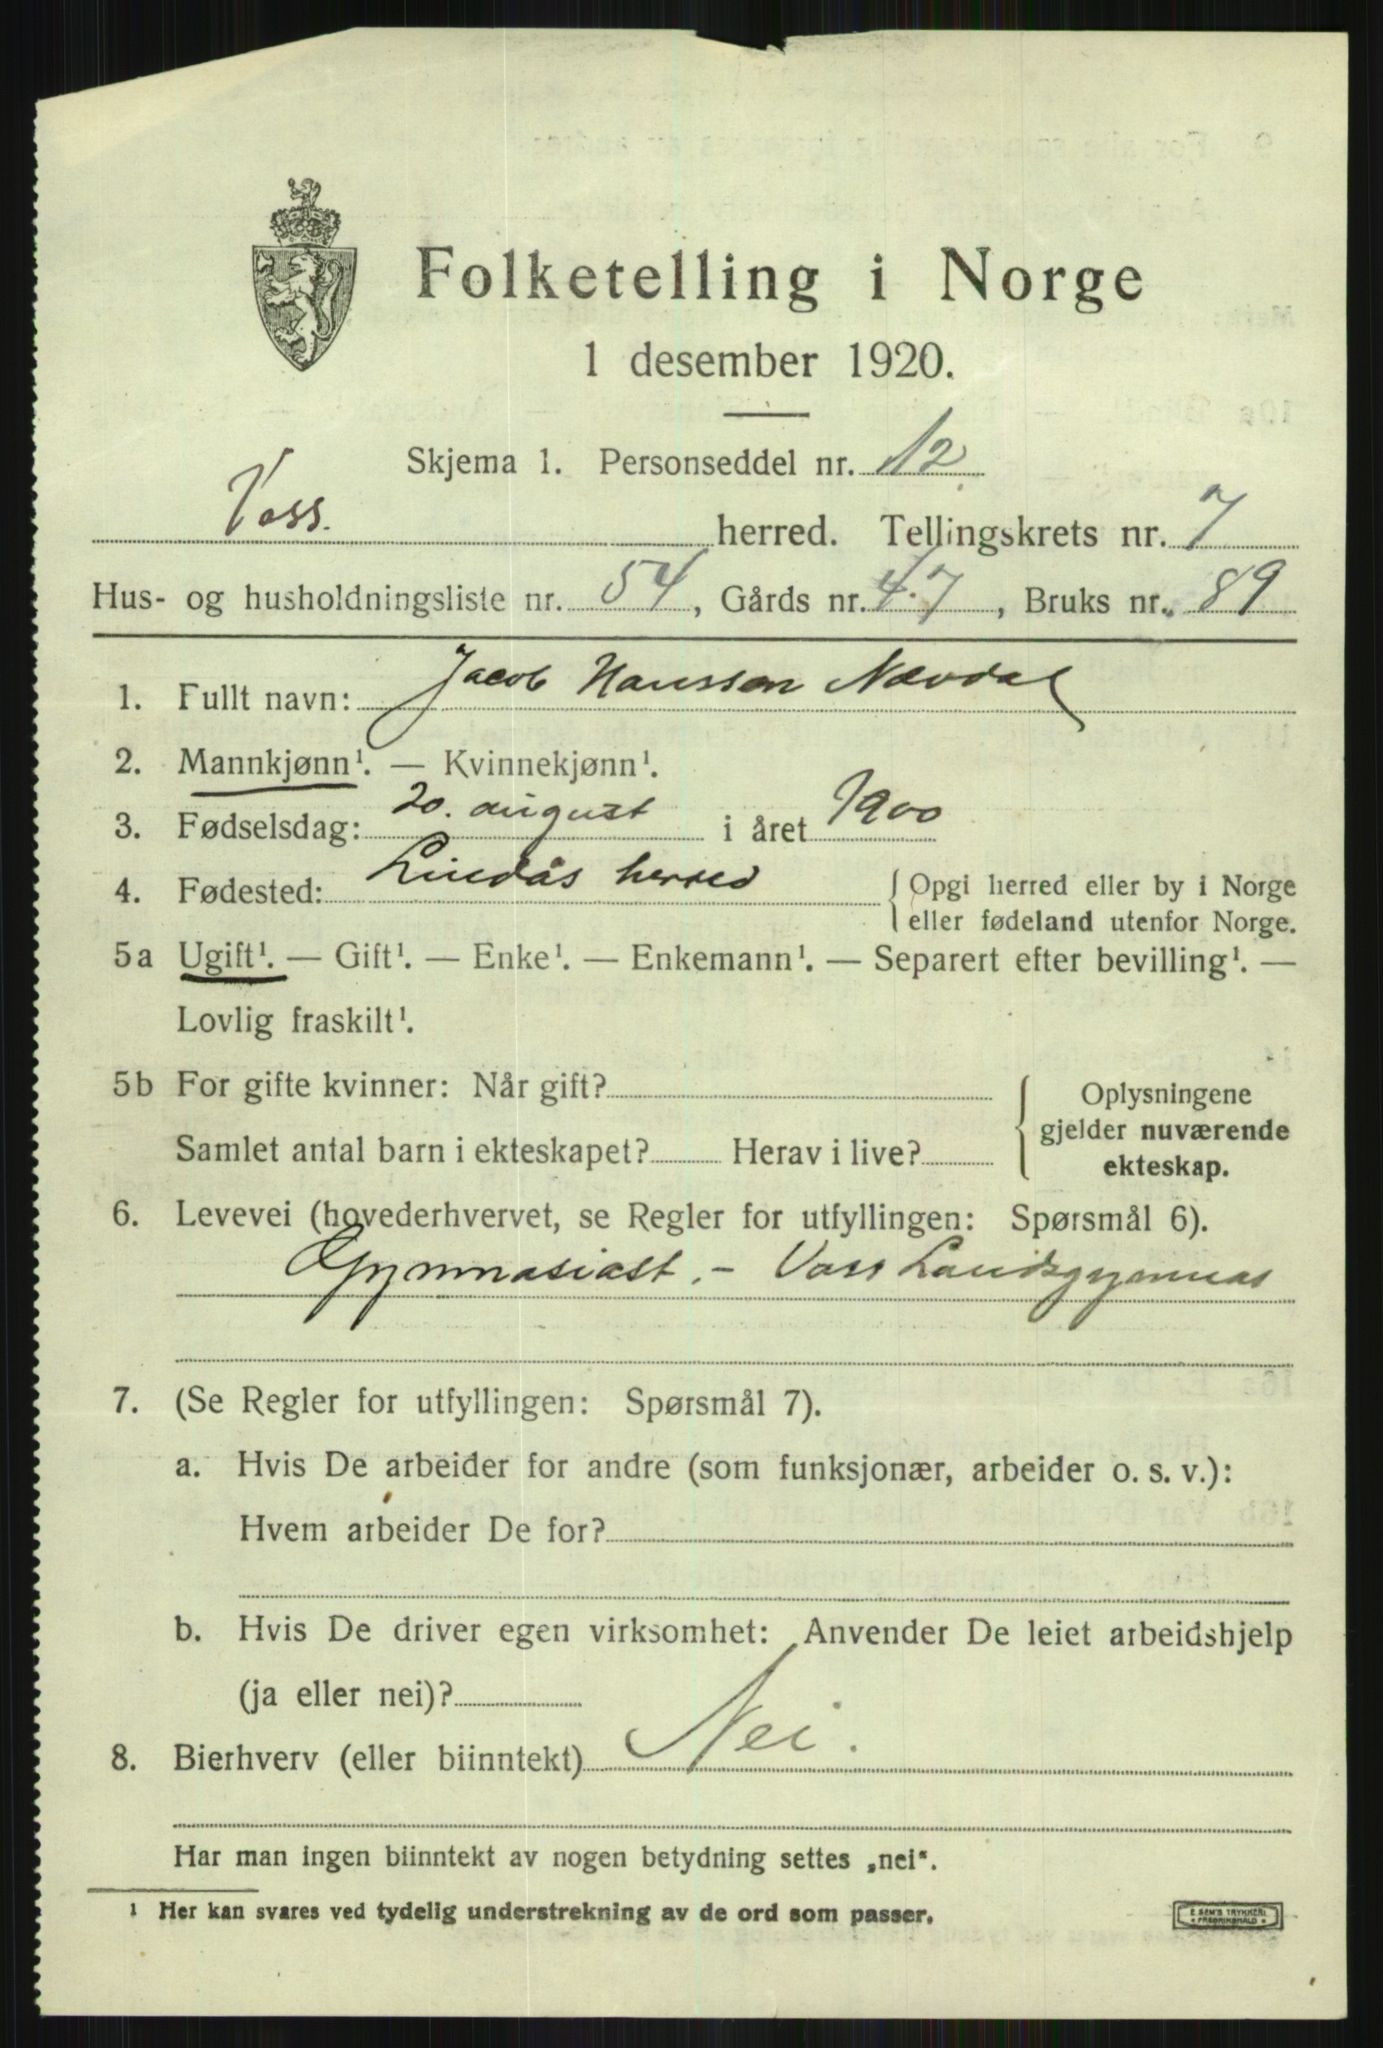 Folketelling i Norge
1 desember 1920.
Skjema 1. Personseddel nr. 12
Voss. herred. Tellingskrets nr. 7
Hus- og husholdningsliste nr. 54, Gårds nr. 47, Bruks nr. 89
1. Fullt navn: Jacob Hanssen Nævdal
2. Mannkjønn¹. — Kvinnekjønn¹.
3. Fødselsdag: 20. august i året 1900
4. Fødested: Lindås herred { Opgi herred eller by i Norge
eller fødeland utenfor Norge.
5a Ugift¹. — Gift¹. — Enke¹. — Enkemann¹. — Separert efter bevilling¹. —
Lovlig fraskilt¹.
5b For gifte kvinner: Når gift?
Samlet antal barn i ekteskapet? Herav i live?
{ Oplysningene
gjelder nuværende
ekteskap.
6. Levevei (hovederhvervet, se Regler for utfyllingen: Spørsmål 6).
Gymnasiast. – Voss Landsgymnas
7. (Se Regler for utfyllingen: Spørsmål 7).
a. Hvis De arbeider for andre (som funksjonær, arbeider o. s. v.):
Hvem arbeider De for?
b. Hvis De driver egen virksomhet: Anvender De leiet arbeidshjelp
(ja eller nei)?
8. Bierhverv (eller biinntekt) Nei.
Har man ingen biinntekt av nogen betydning settes „nei“.
¹ Her kan svares ved tydelig understrekning av de ord som passer.
E. SEM'S TRYKKERI
FREDRIKSHALD